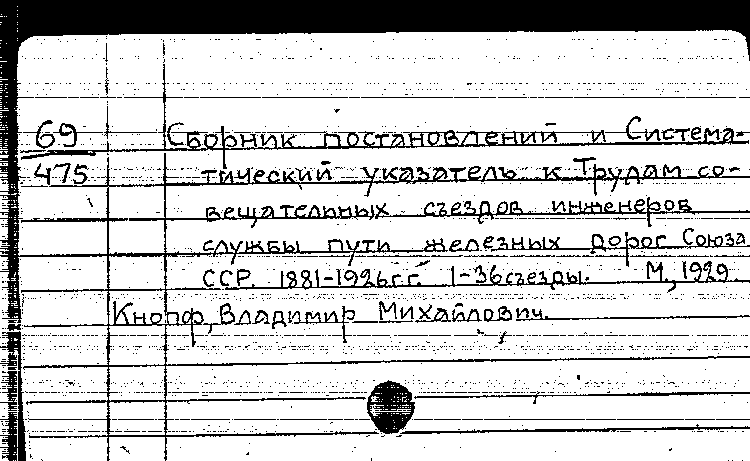 69
475
Сборник постановлений и Система-
тический указатель к Трудам со-
вещательных съездов инженеров
службы пути железных дорог Союза
ССР. 1881-1926г.г. 1-36 съезды. М., 1929.
Кнопф, Владимир Михайлович.